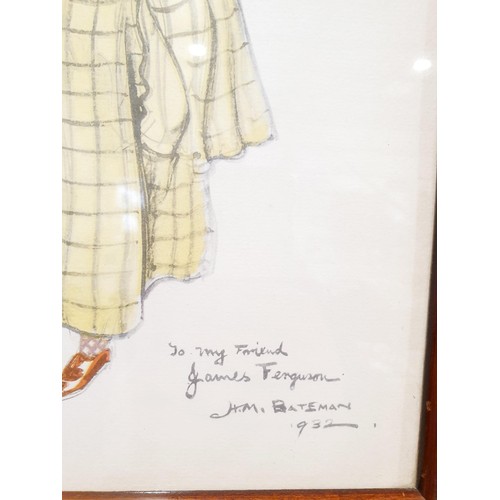 To my Friend
James Ferguson.
H.M. BATEMAN
1932.